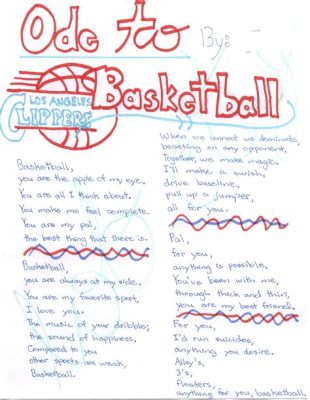 Ode to
By:
Basketball
LOS ANGELES
CLIPPERS
Basketball,
you are the apple of my eye.
You are all I think about.
You make me feel complete.
You are my pal,
the best thing that there is.
Basketball,
you are always at my side.
You are my favorite sport,
I love you.
The music of your dribble;
the sound of happiness.
Compared to you
other sports are weak,
Basketball.
When we connect we dominate,
beasting on any opponent.
Together, we make magic.
I'll make a swish,
drive baseline,
pull up a jumper,
all for you.
Pal,
for you,
anything is possible.
You've been with me,
through thick and thin,
you are my best friend.
For you,
I'd run suicides,
anything you desire.
Alley's,
3's,
floaters,
anything for you, basketball.